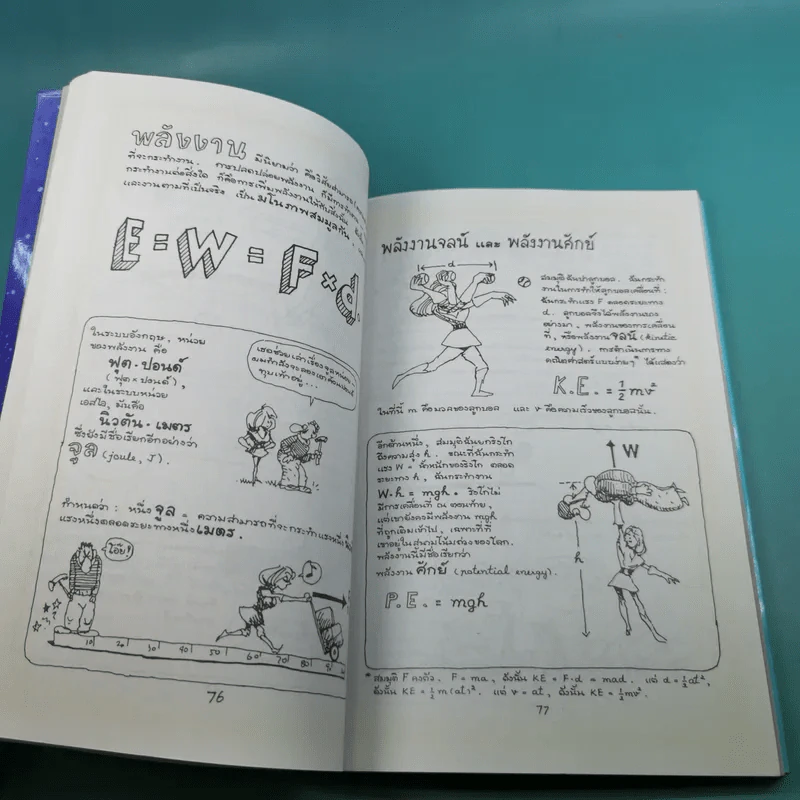 พลังงาน มีนิยามว่า คือวิสัยสามารถ
ที่จะกระทำงาน. การปลดปล่อยพลังงาน ก็มีการทำงาน
กระทำงานต่อสิ่งใด ก็คือการเพิ่มพลังงานให้กับสิ่งนั้น
และงานตามที่เป็นจริง เป็นมโนภาพสมมูลกัน.
E = W = F × d.
ในระบบอังกฤษ, หน่วย
ของพลังงาน คือ
ฟุต·ปอนด์
(ฟุต × ปอนด์),
และในระบบหน่วย
เอสไอ, มันคือ
นิวตัน·เมตร
ซึ่งยังมีชื่อเรียกอีกอย่างว่า
จูล (joule, J).
เธอช่วยเล่าเรื่องจูลหน่อย
ผมกำลังจะลองเอาค้อนปอนด์
ทุบเท้าอยู่...
กำหนดว่า: หนึ่ง จูล = ความสามารถที่จะกระทำแรงหนึ่ง
แรงหนึ่งตลอดระยะทางหนึ่งเมตร.
โอ๊ย!
10 20 30 40 50 60 70 80
76
พลังงานจลน์ และ พลังงานศักย์
d
สมมุติฉันปาลูกบอล. ฉันกระทำ
งานในการทำให้ลูกบอลเคลื่อนที่:
ฉันกระทำแรง F ตลอดระยะทาง
d. ลูกบอลจึงได้พลังงานเอา
อย่างมา, พลังงานของการเคลื่อน
ที่, หรือพลังงานจลน์ (kinetic
energy). การดำเนินการทาง
คณิตศาสตร์แบบง่ายๆ* ได้แสดงว่า
K.E. = ½mv²
ในที่นี้ m คือมวลของลูกบอล และ v คือความเร็วของลูกบอลนั้น.
อีกด้านหนึ่ง, สมมุติฉันยกริงโก
ถึงความสูง h. ขณะที่ฉันกระทำ
แรง W = น้ำหนักของริงโก ตลอด
ระยะทาง h, ฉันกระทำงาน
W·h = mgh. ริงโกไม่
มีการเคลื่อนที่ ณ ตอนท้าย,
แต่เขายังคงมีพลังงาน mgh
ที่ถูกเติมเข้าไป, เฉพาะที่ที่
เขาอยู่ในสนามโน้มถ่วงของโลก.
พลังงานนี้มีชื่อเรียกว่า
พลังงานศักย์ (potential energy).
P.E. = mgh
W
h
* สมมุติ F คงตัว. F = ma, ดังนั้น KE = F·d = mad. แต่ d = ½at²,
ดังนั้น KE = ½m(at)². แต่ v = at, ดังนั้น KE = ½mv².
77